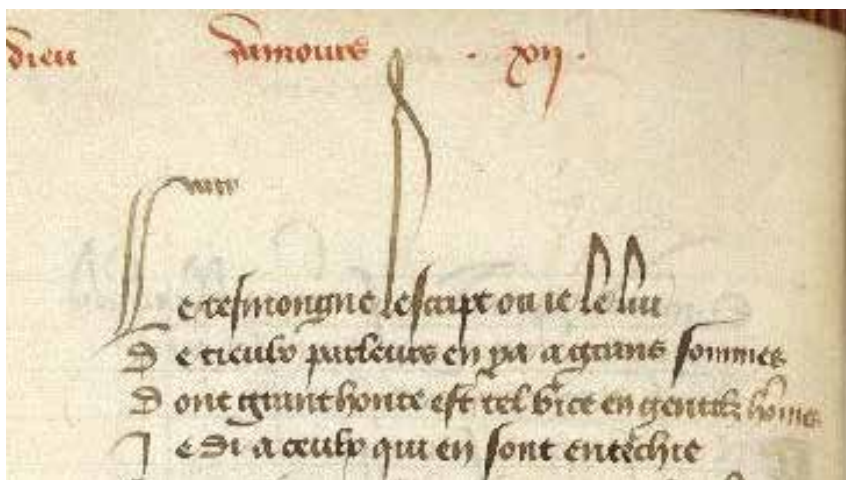 dieu damours . xij .
Le tesmongne lescript ou ie le luy
De tieulx parleurs en ya a grans sommes
Dont grant honte est tel vice en gentilz hommes
Je di a ceulx qui en sont entechie